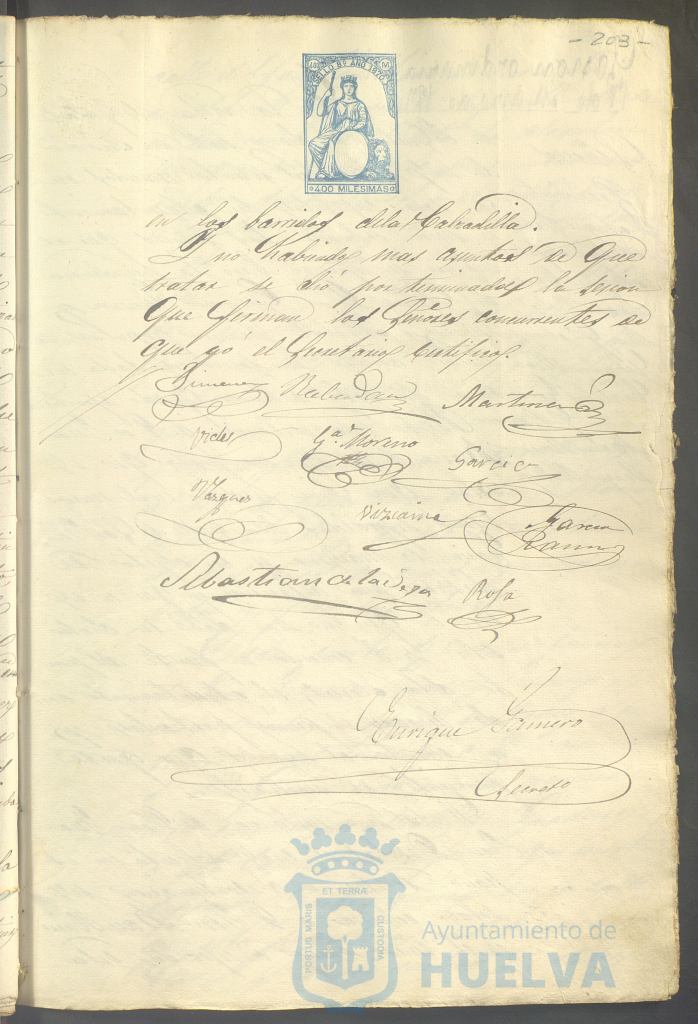 - 203 -
SELLO 8º AÑO 1870
400 MILESIMAS
en los barridos de la Calzadilla.
Y no habiendo mas asuntos de que
tratar se dió por terminados la sesion
que firman los Señores concurrentes de
que yó el Secretario certifico.
Jimenez Rabadan Martinez
Vides Gª Moreno Garcia
Vazquez Vizcaino Garcia Ramos
Sebastian de la Vega Rosa
Enrique Gamero
Secreto
PORTUS MARIS ET TERRÆ CUSTODIA
Ayuntamiento de
HUELVA